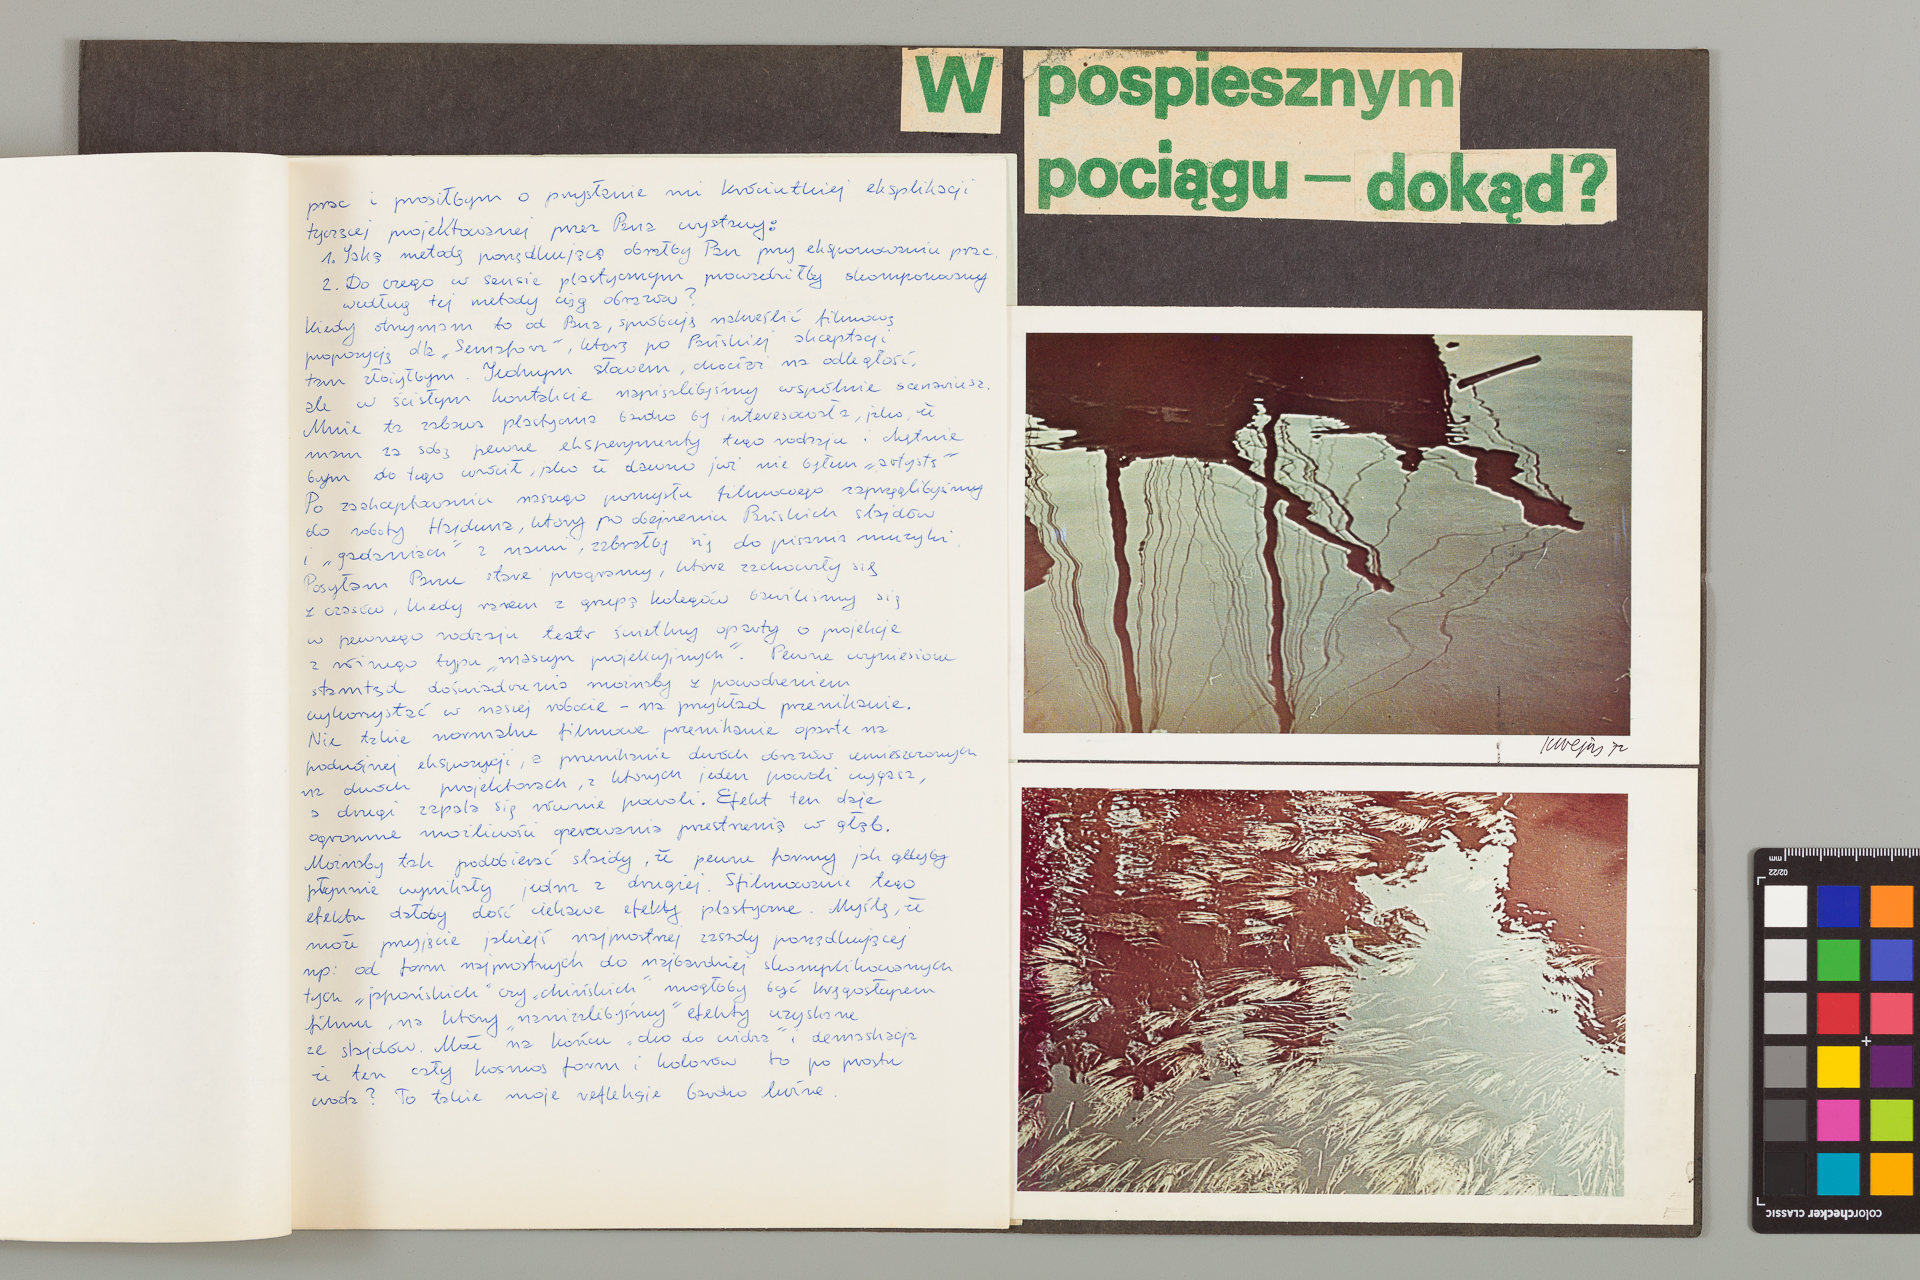 W pospiesznym
pociągu – dokąd?
prac i prosiłbym o przysłanie mi króciutkiej eksplikacji
tyczącej projektowanej przez Pana wystawy:
1. Jaką metodę porządkującą obrałby Pan przy eksponowaniu prac.
2. Do czego w sensie plastycznym prowadziłby skomponowany
według tej metody ciąg obrazów?
Kiedy otrzymam to od Pana, spróbuję nakreślić filmową
propozycję dla „Semafora", którą po Pańskiej akceptacji
tam złożyłbym. Jednym słowem, chociaż na odległość,
ale w ścisłym kontakcie napisalibyśmy wspólnie scenariusz.
Mnie ta zabawa plastyczna bardzo by interesowała, jako, że
mam za sobą pewne eksperymenty tego rodzaju i chętnie
bym do tego wrócił, jako że dawno już nie byłem „artystą"
Po zaakceptowaniu naszego pomysłu filmowego zaprzęglibyśmy
do roboty Hajduna, który po obejrzeniu Pańskich slajdów
i „gadaniach" z nami, zabrałby się do pisania muzyki.
Posyłam Panu stare programy, które zachowały się
z czasów, kiedy razem z grupą kolegów bawiliśmy się
w pewnego rodzaju teatr świetlny oparty o projekcje
z różnego typu „maszyn projekcyjnych". Pewne wyniesione
stamtąd doświadczenia możnaby z powodzeniem
wykorzystać w naszej robocie – na przykład przenikanie.
Nie takie normalne filmowe przenikanie oparte na
podwójnej ekspozycji, a przenikanie dwóch obrazów umieszczonych
na dwóch projektorach, z których jeden powoli wygasa,
a drugi zapala się równie powoli. Efekt ten daje
ogromne możliwości operowania przestrzenią w głąb.
Możnaby tak podobierać slajdy, że pewne formy jak gdyby
płynnie wynikały jedna z drugiej. Sfilmowanie tego
efektu dałoby dość ciekawe efekty plastyczne. Myślę, że
może przyjęcie jakiejś najprostszej zasady porządkującej
np: od form najprostszych do najbardziej skomplikowanych
tych „japońskich" czy „chińskich" mogłoby być kręgosłupem
filmu, na który „nanizalibyśmy" efekty uzyskane
ze slajdów. Może na końcu „oko do widza" i demaskacja
że ten cały kosmos form i kolorów to po prostu
woda? To takie moje refleksje bardzo luźne.
mm
02/22
colorchecker CLASSIC